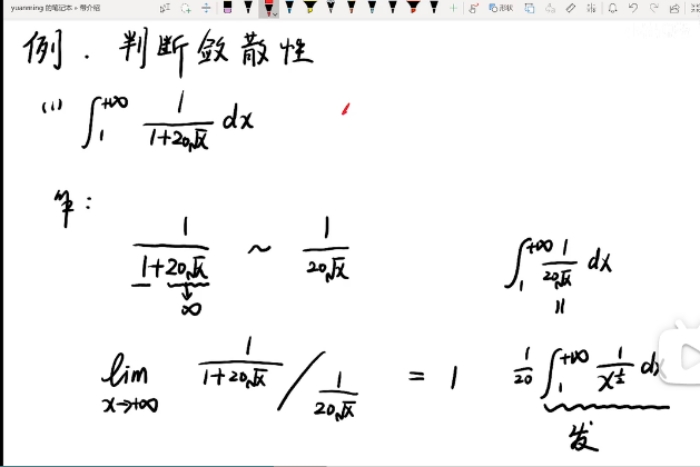 yuanming 的笔记本 • 帮介绍
形状
例. 判断敛散性
(1) ∫₁^{+∞} 1/(1+20√x) dx
解:
1/(1+20√x) ~ 1/(20√x)
∞
∫₁^{+∞} 1/(20√x) dx
lim_{x→+∞} 1/(1+20√x) / 1/(20√x) = 1
=
1/20 ∫₁^{+∞} 1/x^{1/2} dx
发